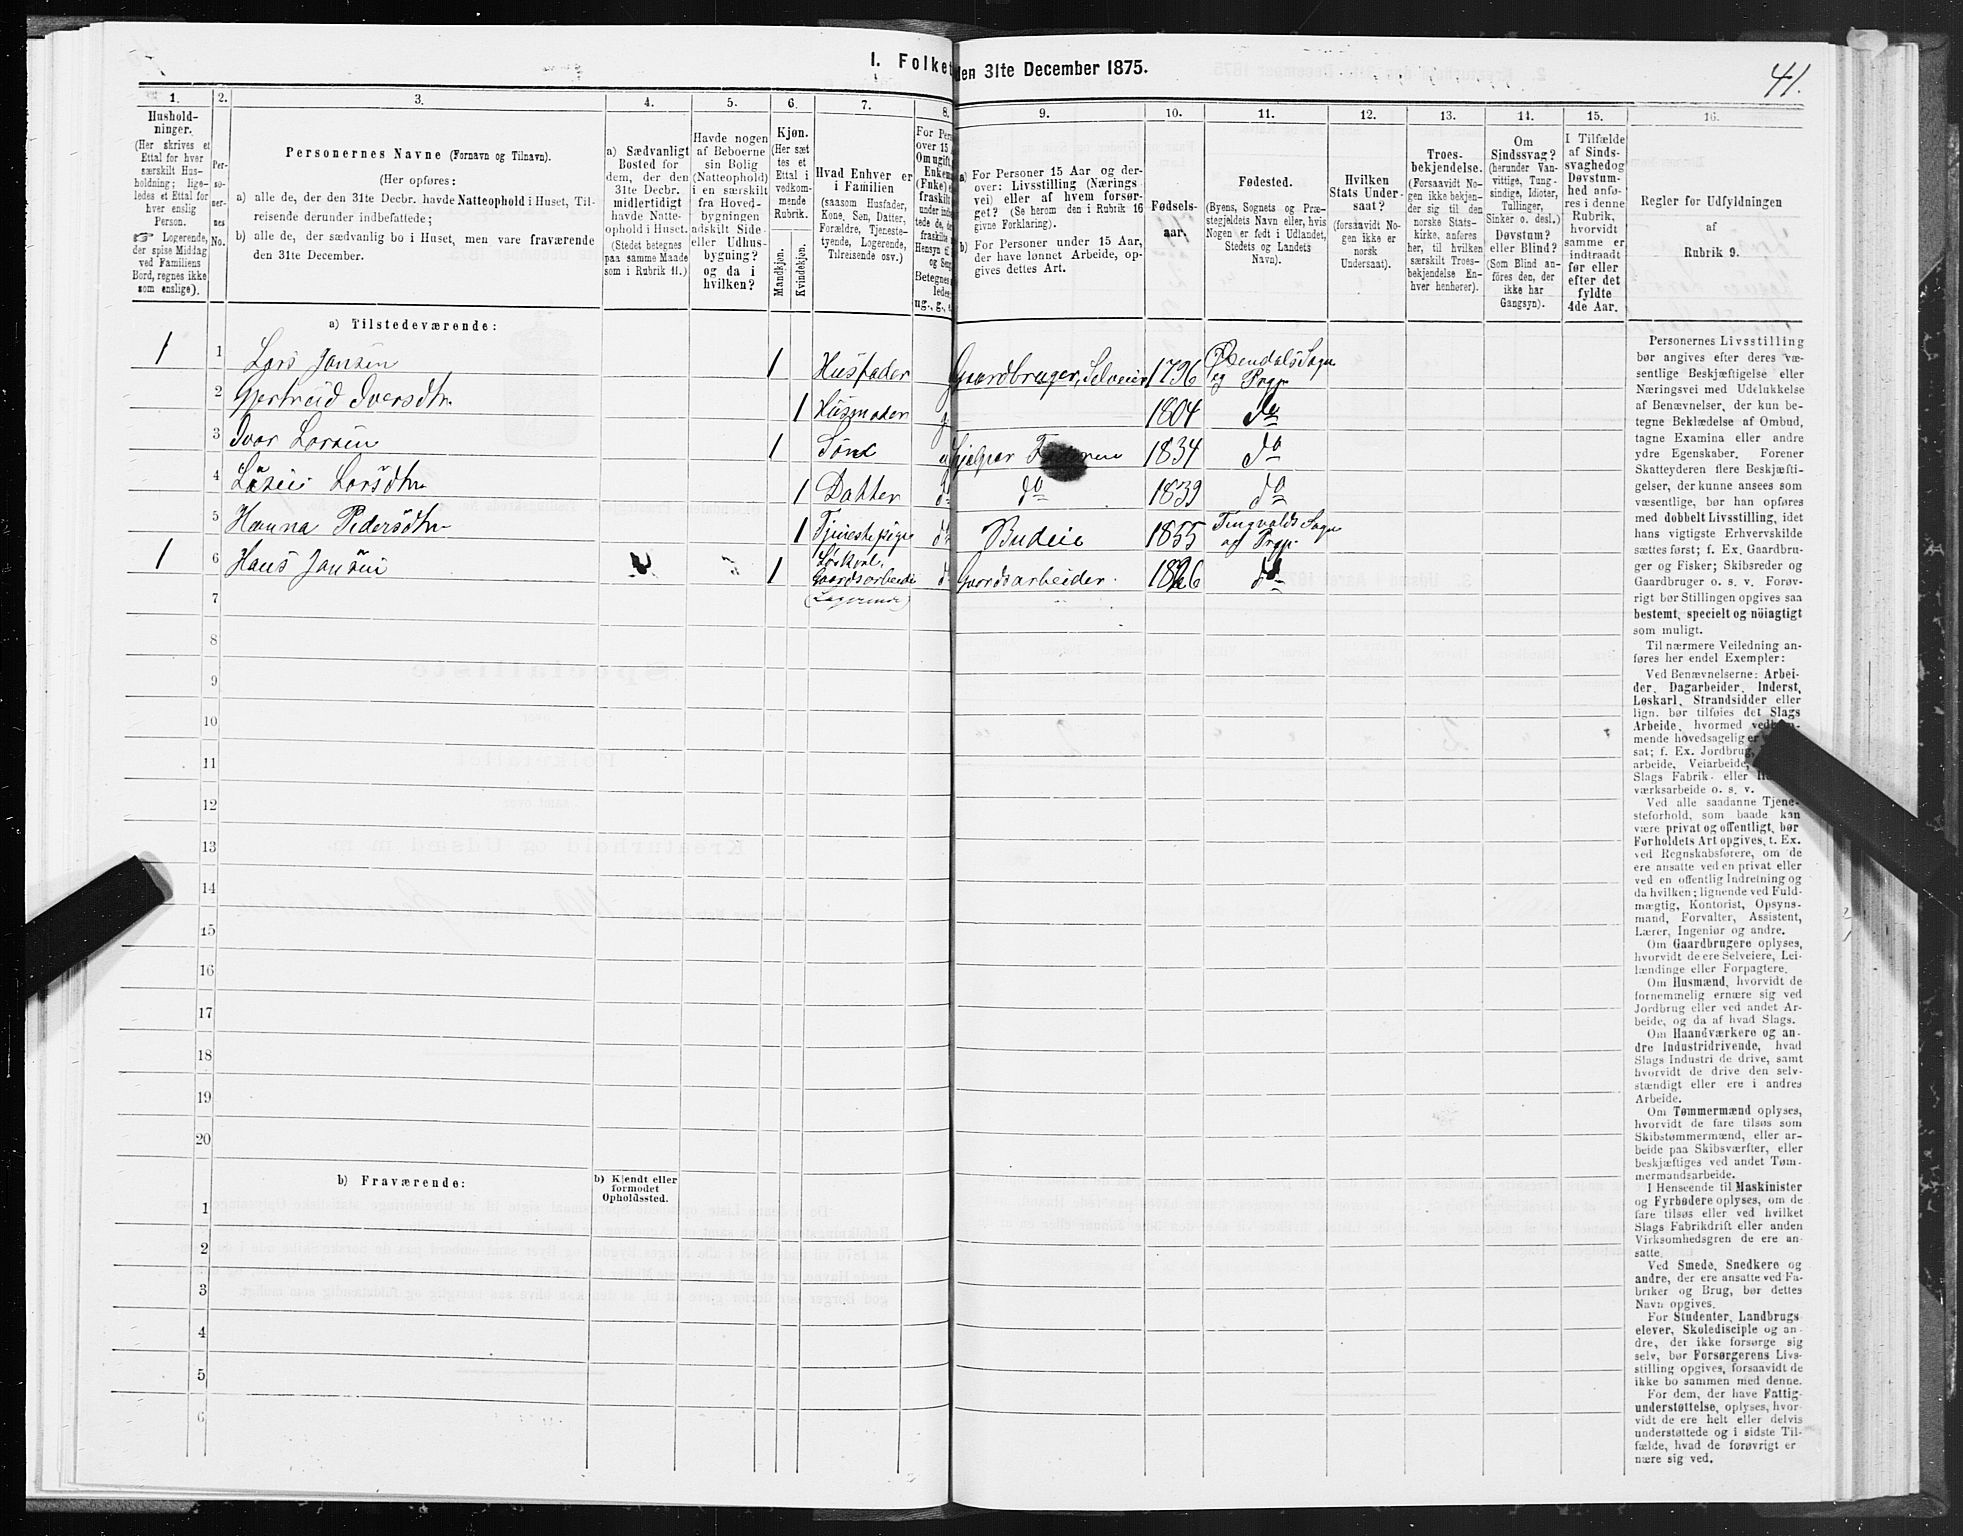 I. Folket
den 31te December 1875.
41.
1.
2.
3.
4.
5.
6.
7.
8.
9.
10.
11.
12.
13.
14.
15.
16.
Hushold-
ninger.
(Her skrives et
Ettal for hver
særskilt Hus-
holdning; lige-
ledes et Ettal for
hver enslig
Person.
☞ Logerende,
der spise Middag
ved Familiens
Bord, regnes ikke
som enslige).
Per-
so-
ner-
nes
No.
Personernes Navne (Fornavn og Tilnavn).
(Her opføres:
a) alle de, der den 31te Decbr. havde Natteophold i Huset, Til-
reisende derunder indbefattede;
b) alle de, der sædvanlig bo i Huset, men vare fraværende
den 31te December.
a) Sædvanligt
Bosted for
dem, der den
31te Decbr.
midlertidigt
havde Natte-
ophold i Huset.
(Stedet betegnes
paa samme Maade
som i Rubrik 11.)
Havde nogen
af Beboerne
sin Bolig
(Natteophold)
i en særskilt
fra Hoved-
bygningen
adskilt Side-
eller Udhus-
bygning?
og da i
hvilken?
Kjøn.
(Her sæt
tes et
Ettal i
vedkom-
mende
Rubrik.
Mandkjøn.
Kvindekjøn.
Hvad Enhver er
i Familien
(saasom Husfader,
Kone, Søn, Datter,
Forældre, Tjeneste-
tyende, Logerende,
Tilreisende osv.)
For Pers
over 15 A
Om ugift,
Enkem
(Fnke) e
fraskilt
under indb
tede de, de
fraskilte
Hensyn til
og Seng
Betegnes s
ledes:
ug., g., e
a) For Personer 15 Aar og der-
over: Livsstilling (Nærings
vei) eller af hvem forsør-
get? (Se herom den i Rubrik 16
givne Forklaring).
b) For Personer under 15 Aar,
der have lønnet Arbeide, op-
gives dettes Art.
Fødsels-
aar.
Fødested.
(Byens, Sognets og Præ-
stegjeldets Navn eller, hvis
Nogen er født i Udlandet,
Stedets og Landets
Navn).
Hvilken
Stats Under-
saat?
(forsaavidt No-
gen ikke er
norsk
Undersaat).
Troes-
bekjendelse.
(Forsaavidt No-
gen ikke bekjen-
der sig til den
norske Stats-
kirke, anføres
her, til hvilken
særskilt Troes-
bekjendelse En-
hver henhører).
Om
Sindssvag?
(herunder Van-
vittige, Tung-
sindige, Idioter,
Tullinger,
Sinker o. desl.)
Døvstum?
eller Blind?
(Som Blind an-
føres den, der
ikke har
Gangsyn).
I Tilfælde
af Sinds-
svaghed og
Døvstum-
hed anfø-
res i denne
Rubrik,
hvorvidt
samme er
indtraadt
før eller
efter det
fyldte
4de Aar.
Regler for Udfyldningen
af
Rubrik 9.
a) Tilstedeværende:
1 1 Lars Jansen 1 Husfader g Gaardbruger, Selveier 1796 Øxendals Sogn
og Prgj.
2 Gjertrud Iversdtr. 1 Husmoder g 1804 do
3 Ivar Larsen 1 Søn u Hjelper Faderen 1834 do
4 Larsdtr 1 Datter do do 1839 do
5 Hanna Pedersdtr 1 Tjenestepige do Budeie 1855 Tingvolds Sogn
og Prgj.
1 6 Hans Jansen 1 Løskarl
Gaardsarbeide
(Logerende) do Gaardsarbeider. 1826 do
7
8
9
10
11
12
13
14
15
16
17
18
19
20
b) Fraværende:
b) Kjendt eller
formodet
Opholdssted.
1
2
3
4
5
6
Personernes Livsstilling
bør angives efter deres væ-
sentlige Beskjæftigelse eller
Næringsvei med Udelukkelse
af Benævnelser, der kun be-
tegne Beklædelse af Ombud,
tagne Examina eller andre
ydre Egenskaber. Forener
Skatteyderen flere Beskjæfti-
gelser, der kunne ansees som
væsentlige, bør han opføres
med dobbelt Livsstilling, idet
hans vigtigste Erhvervskilde
sættes først; f. Ex. Gaardbru-
ger og Fisker; Skibsreder og
Gaardbruger o. s. v. Forøv-
rigt bør Stillingen opgives saa
bestemt, specielt og nöiagtigt
som muligt.
Til nærmere Veiledning an-
føres her endel Exempler:
Ved Benævnelserne: Arbei-
der, Dagarbeider, Inderst,
Løskarl, Strandsidder eller
lign. bør tilføies det Slags
Arbeide, hvormed vedkom-
mende hovedsagelig er
sat; f. Ex. Jordbrug,
arbeide, Veiarbeide,
Slags Fabrik- eller
værksarbeide o. s. v.
Ved alle saadanne Tjene-
steforhold, som baade kan
være privat og offentligt, bør
Forholdets Art opgives, t. Ex.
ved Regnskabsførere, om de
ere ansatte ved en privat eller
ved en offentlig Indretning og
da hvilken; lignende ved Fuld-
mægtig, Kontorist, Opsyns-
mand, Forvalter, Assistent,
Lærer, Ingeniør og andre.
Om Gaardbrugere oplyses,
hvorvidt de ere Selveiere, Lei-
lændinge eller Forpagtere.
Om Husmænd, hvorvidt de
fornemmelig ernære sig ved
Jordbrug eller ved andet Ar-
beide, og da af hvad Slags.
Om Haandværkere og an-
dre Industridrivende, hvad
Slags Industri de drive, samt
hvorvidt de drive den selv-
stændigt eller ere i andres
Arbeide.
Om Tømmermænd oplyses,
hvorvidt de fare tilsøs som
Skibstømmermænd, eller ar-
beide paa Skibsværfter, eller
beskjæftiges ved andet Tøm-
mermandsarbeide.
I Henseende til Maskinister
og Fyrbødere oplyses, om de
fare tilsøs eller ved hvilket
Slags Fabrikdrift eller anden
Virksomhedsgren de ere an-
satte.
Ved Smede, Snedkere og
andre, der ere ansatte ved Fa-
briker og Brug, bør dettes
Navn opgives.
For Studenter, Landbrugs
elever, Skoledisciple og an-
dre, der ikke forsørge sig
selv, bør Forsørgerens Livs-
stilling opgives, forsaavidt de
ikke bo sammen med denne.
For dem, der have Fattig-
understøttelse, oplyses, hvor-
vidt de ere helt eller delvis
understøttede og i sidste Til-
fælde, hvad de forøvrigt er
nære sig ved.